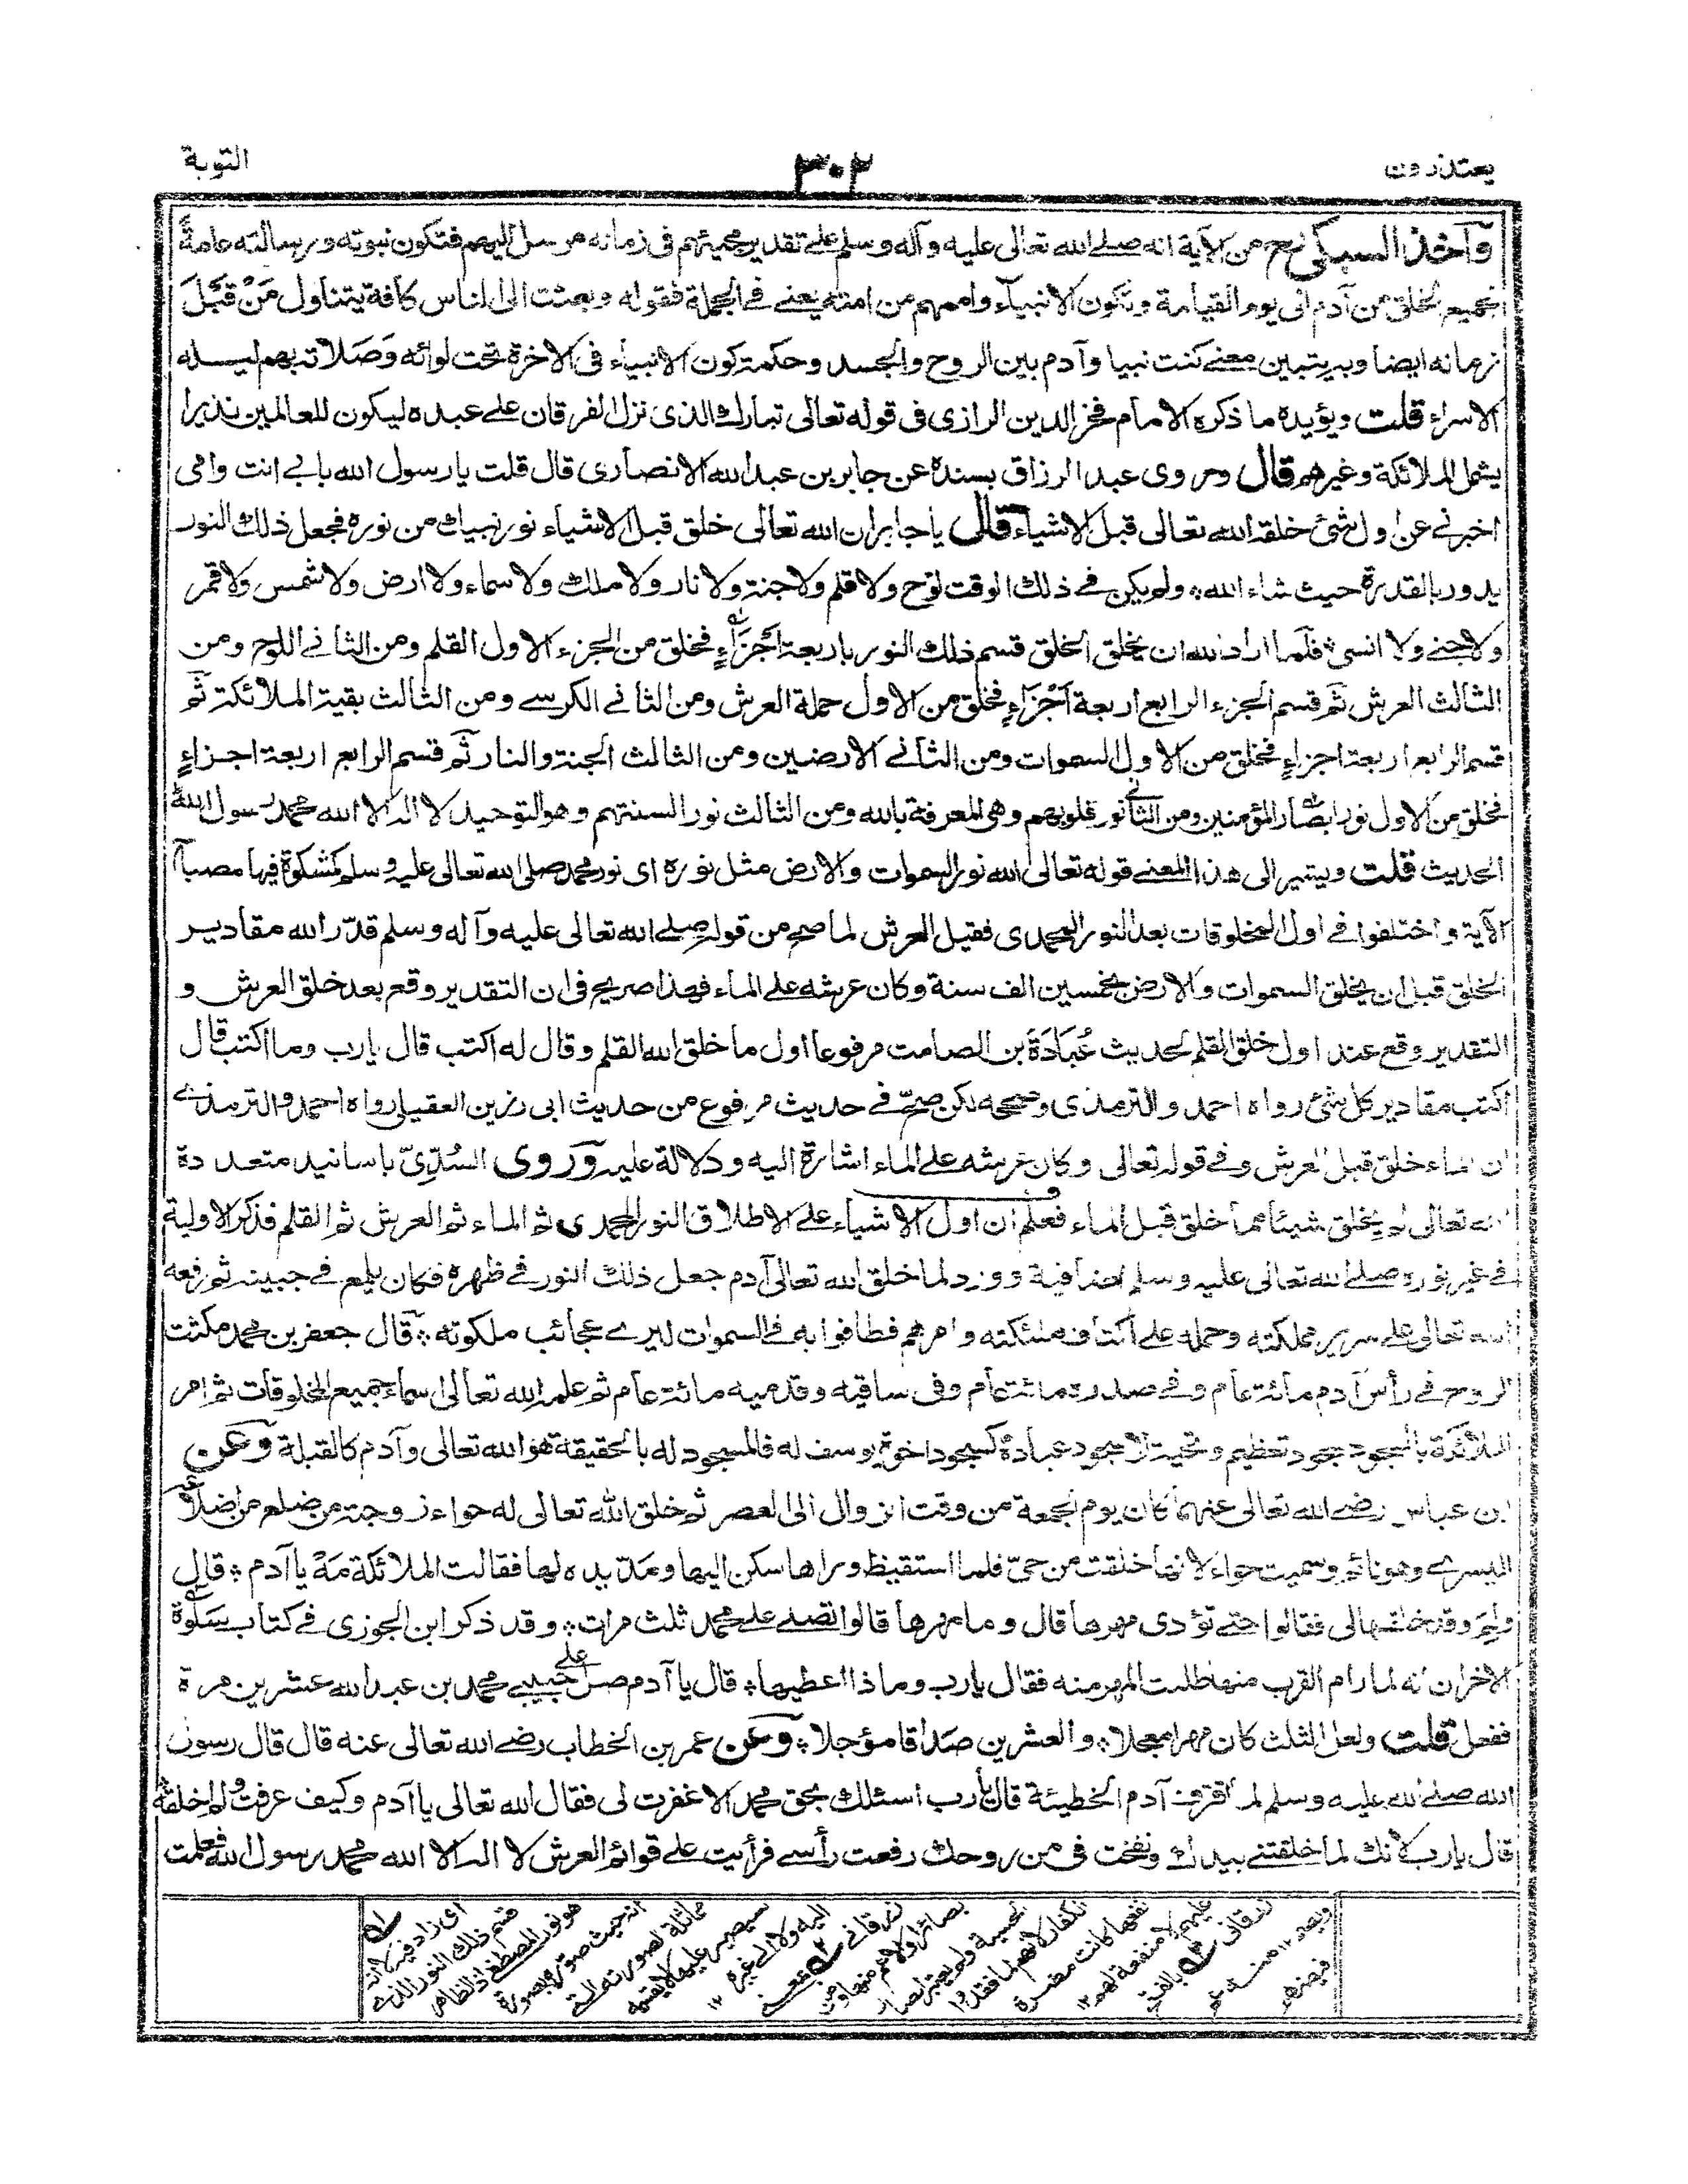 يعتذرون
٣٠٢
التوبة
وأخذ السبكي رح من الآية انه صلے الله تعالى عليه وآله وسلم علے تقدير مجيئهم فى زمانه مرسل اليهم فتكون نبوته ورسالته عامةً
لجميع الخلق من آدم الى يوم القيامة وتكون الانبياء واممهم من امته يعنے فے الجملة فقوله وبعثت الى الناس كافة يتناول مَنْ قَبْلَ
زمانه ايضا وبه يتبين معنے كنت نبيا وآدم بين الروح والجسد وحكمة كون الانبياء فى الاخرة تحت لوائه وَصَلاته بهم ليلة
الاسراء قلت ويؤيده ما ذكره الامام فخر الدين الرازى فى قوله تعالى تبارك الذى نزل الفرقان علے عبده ليكون للعالمين نذيرا
يشمل الملائكة وغيرهم قال وروى عبد الرزاق بسنده عن جابر بن عبد الله الانصارى قال قلت يارسول الله بابے انت وامى
اخبرنے عن اول شئ خلقه الله تعالى قبل الاشياء قال يا جابر ان الله تعالى خلق قبل الاشياء نور نبيك من نوره فجعل ذلك النور
يدور بالقدرة حيث شاء الله ولم يكن فے ذلك الوقت لوح ولا قلم ولا جنة ولا نار ولا ملك ولا سماء ولا ارض ولا شمس ولا قمر
ولا جنے ولا انسى فلما اراد الله ان يخلق الخلق قسم ذلك النور باربعة اَجْزَاءٍ فخلق من الجزء الاول القلم ومن الثانے اللوح ومن
الثالث العرش ثم قسم الجزء الرابع اربعة اَجْزَاءٍ فخلق من الاول حملة العرش ومن الثانے الكرسے ومن الثالث بقية الملائكة ثم
قسم الرابع اربعة اجزاءٍ فخلق من الاول السموات ومن الثانے الارضين ومن الثالث الجنة والنار ثم قسم الرابع اربعة اجزاءٍ
فخلق من الاول نور ابصار المؤمنين ومن الثانے نور قلوبهم وهى المعرفة بالله ومن الثالث نور السنتهم وهو التوحيد لا اله الا الله محمد رسول الله
الحديث قلت ويشير الى هذا المعنے قوله تعالى الله نور السموات والارض مثل نوره اى نور محمد صلى الله تعالى عليه وسلم كمشكوة فيها مصباح
الآية واختلفوا فے اول المخلوقات بعد النور المحمدى فقيل العرش لما صح من قوله صلے الله تعالى عليه وآله وسلم قدّر الله مقادير
الخلق قبل ان يخلق السموات والارض بخمسين الف سنة وكان عرشه علے الماء فهذا صريح فى ان التقدير وقع بعد خلق العرش و
التقدير وقع عند اول خلق القلم لحديث عُبَادَةَ بن الصامت مرفوعا اول ما خلق الله القلم وقال له اكتب قال يارب وما اكتب قال
اكتب مقادير كل شئ رواه احمد والترمذى وصححه لكن صحّ فے حديث مرفوع من حديث ابى رزين العقيلى رواه احمد والترمذے
ان الماء خلق قبل العرش وفے قوله تعالى وكان عرشه علے الماء اشارة اليه ودلالة عليه وروى السُدّىّ باسانيد متعددة
انه تعالى لم يخلق شيئا مما خلق قبل الماء فعلم ان اول الاشياء علے الاطلاق النور المحمدى ثم الماء ثم العرش ثم القلم فذكر الاولية
فے غير نوره صلے الله تعالى عليه وسلم اضافية وورد لما خلق الله تعالى آدم جعل ذلك النور فے ظهره فكان يلمع فے جبينه ثم رفعه
الله تعالى علے سرير مملكته وحمله علے اكتاف ملئكته وامرهم فطافوا به فے السموات ليرے عجائب ملكوته قال جعفر بن محمد مكثت
الروح فے رأس آدم مائة عام وفے صدره مائة عام وفى ساقيه وقدميه مائة عام ثم علمه الله تعالى اسماء جميع المخلوقات ثم امر
الملائكة بالسجود سجود تعظيم وتحية لا سجود عبادة كسجود اخوة يوسف له فالمسجود له بالحقيقة هو الله تعالى وآدم كالقبلة وعن
ابن عباس رضے الله تعالى عنهما كان يوم الجمعة من وقت الزوال الى العصر ثم خلق الله تعالى له حواء زوجته من ضلع من اضلاعه
اليسرے وهو نائم وسميت حواء لانها خلقت من حىّ فلما استقيظ وراها سكن اليها ومدّ يده لها فقالت الملائكة مَهْ يا آدم قال
ولِمَ وقد خلقها لى فقالوا حتے تؤدى مهرها قال وما مهرها قالوا تصلے علے محمد ثلث مرات وقد ذكر ابن الجوزى فے كتاب سلوة
الاحزان انه لما رام القرب منها طلبت المهر منه فقال يارب وماذا اعطيها قال يا آدم صل علے حبيبے محمد بن عبد الله عشرين مرة
ففعل قلت ولعل الثلث كان مهرا معجلا والعشرين صَدَاقا مؤجلا وعن عمر بن الخطاب رضے الله تعالى عنه قال قال رسول
الله صلے الله عليه وسلم لما اقترف آدم الخطيئة قال يارب اسئلك بحق محمد الا غفرت لى فقال الله تعالى يا آدم وكيف عرفت ولم اخلقه
قال يارب لانك لما خلقتنے بيدك ونفخت فى من روحك رفعت رأسے فرأيت علے قوائم العرش لا اله الا الله محمد رسول الله فعلمت
اى زاد فيه لا انه
قسم ذلك النور الذے
هو نور المصطفے اذ الظاهر
انه حيث صوره بصورة
مماثلة لصورته التے
سيصير عليها لا يقسمه
اليه ولا الے غيره ١٢
زرقانے
بصائر
عليهم لا منفعة لهم ١٢
زرقانى